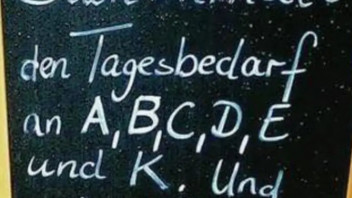 den Tagesbedarf
an A, B, C, D, E
und K. Und